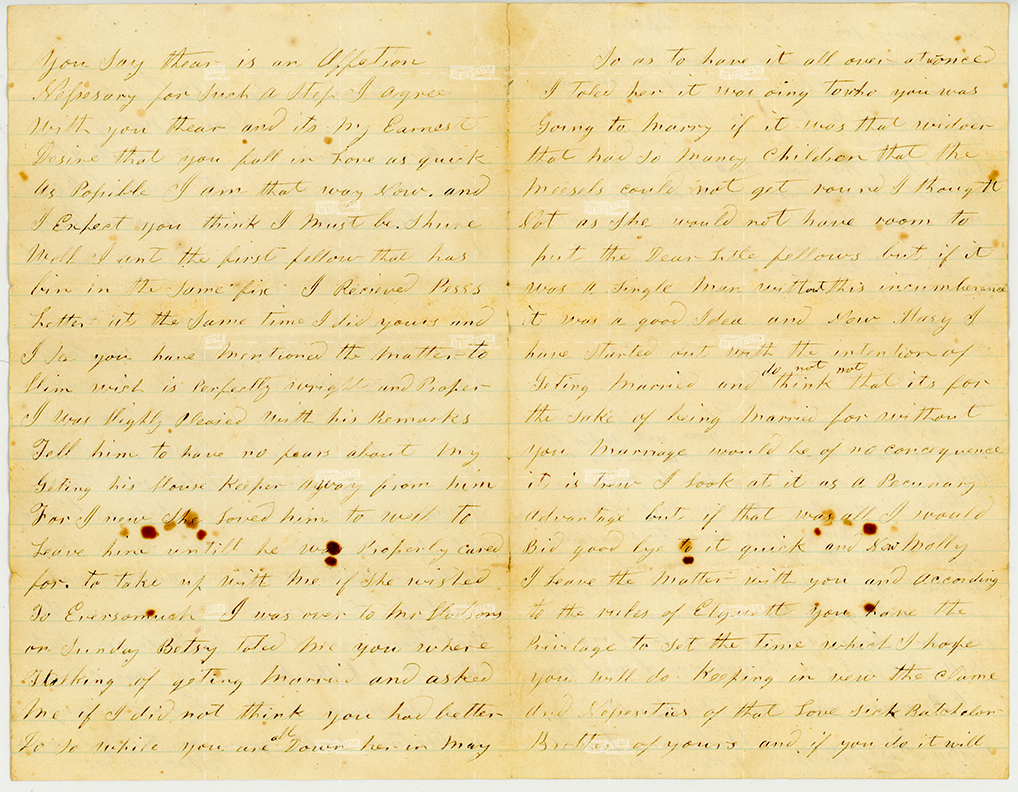 You Say thear is an Affection
Nessesary for Such a Step I agree
With you thear and its My Earnest
Desire that you fall in Love as quick
as Possible I am that way Now. and
I Expect you think I Must be. Shure
Well I ant the first fellow that has
bin in the Same fix I Recieved
Letter at the Same time I did yours and
I Se you have Mentioned the Matter to
Him wich is Perfectly wright and Proper
I was Highly Pleased with his Remarks
Tell him to have no fears about My
Geting his House Keeper away from him
For I new She Loved him to well to
Leave him untill he was Properly cared
for. to take up with Me if She wished
To Eversomuch I was over to Mr
on Sunday Betsy toled Me you where
talking of geting Married and asked
Me if I did not think you had better
Do So while you are all Down her in May
So as to have it all over at once
I toled her it was oing to who you was
Going to Marry if it was that widoer
that had So Maney Children that the
Meesels could not get round I thought
Not as She would not have room to
put the Dear Little fellows but if it
was a Single Man without this incumberence
it was a good Idea and Now Mary I
have Started out with the intention of
Geting Married and do not think not that its for
the Sake of being Married for without
you Marriage would be of no concequence
it is trew I Look at it as a Pecunary
Advantage but if that was all I would
Bid good bye to it quick and Now Molly
I Leave the Matter with you and according
to the rules of Etiquett you have the
Privilage to Set the time which I hope
you will do Keeping in vew the clame
And Nessesities of that Love Sick Batchelor
Brother of yours and if you do it will